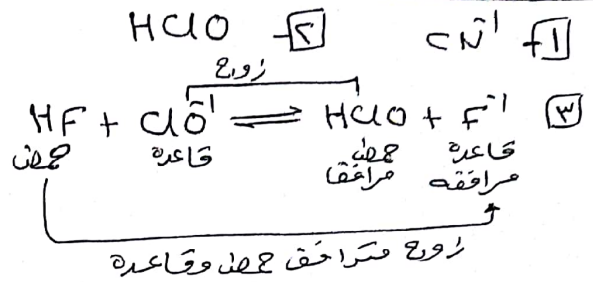 1- CN⁻¹ 2- HClO
زوج
3 HF + ClO⁻¹ ⇌ HClO + F⁻¹
حمض قاعدة حمض مرافق قاعدة مرافقه
زوج مترافق حمض وقاعدة